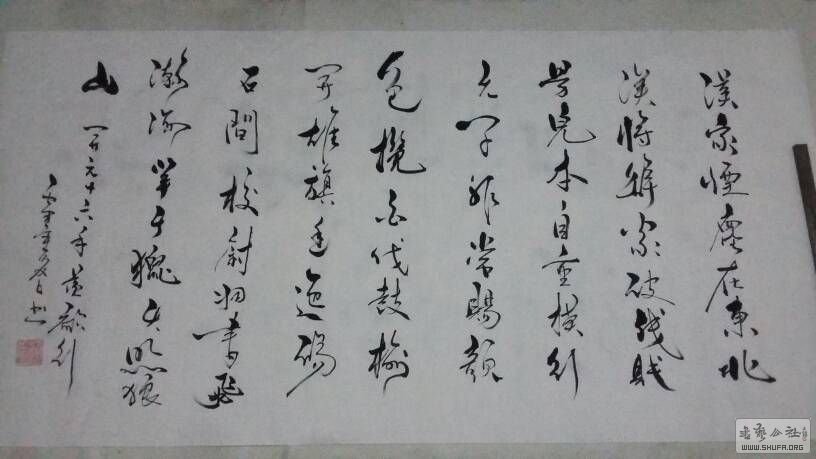 漢家煙塵在東北
漢將辭家破殘賊
男兒本自重橫行
天子非常賜顏
色摐金伐鼓榆
關旌旗逶迤碣
石間校尉羽書飛
瀚海單于獵火照狼
山 開元廿六年燕歌行
书艺公社
WWW.SHUFA.ORG